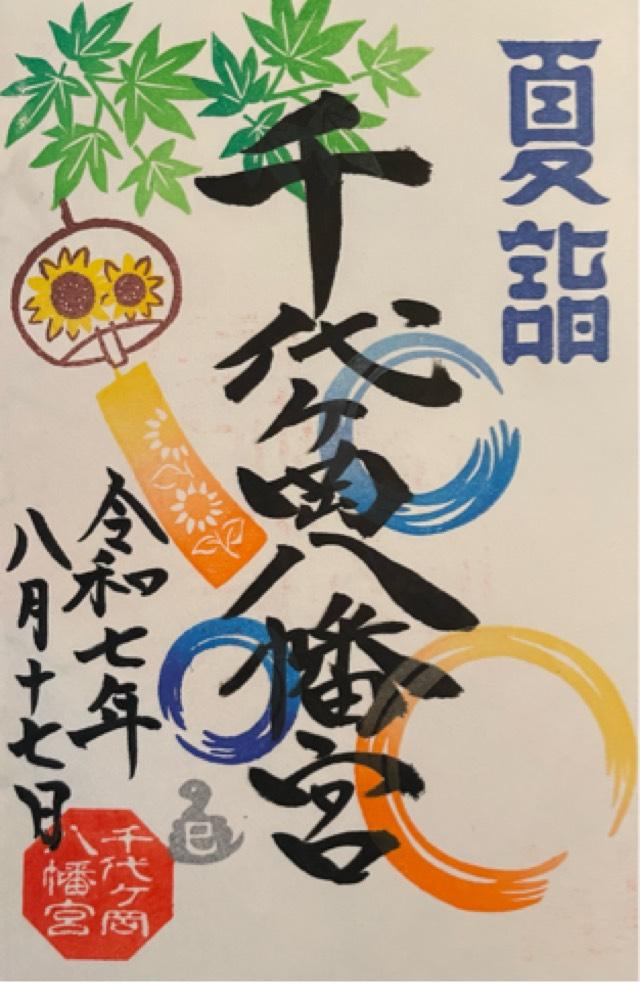 夏詣
千代ヶ岡八幡宮
令和七年
八月十七日
巳
千代ヶ岡
八幡宮